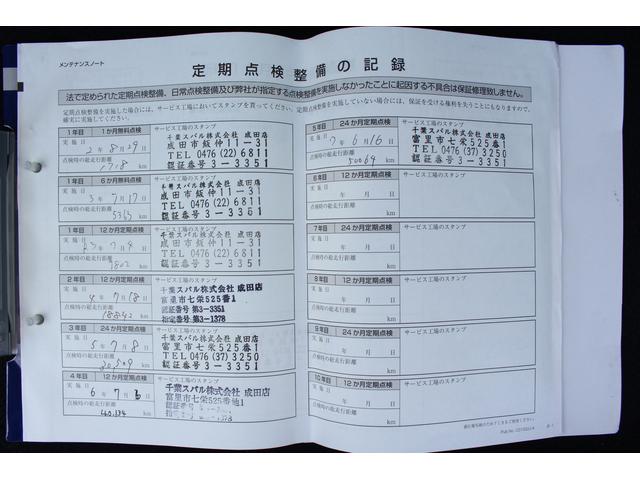 メンテナンスノート
定期点検整備の記録
法で定められた定期点検整備、日常点検整備及び弊社が指定する点検整備を実施しなかったことに起因する不具合は保証修理致しません。
定期点検整備を実施した場合には、サービス工場においてスタンプを貰ってください。定期点検整備を実施していない場合には、保証を受ける権利を失うことにもなりますので、
確実に実施してください。
1年目 1か月無料点検
サービス工場のスタンプ
実施日
2年8月29日
点検時の総走行距離
km
千葉スバル株式会社 成田店
成田市飯仲11-31
TEL 0476 (22) 6811
認証番号 3-3351
1年目 6か月無料点検
サービス工場のスタンプ
実施日
3年7月17日
点検時の総走行距離
km
千葉スバル株式会社 成田店
成田市飯仲11-31
TEL 0476 (22) 6811
認証番号 3-3351
1年目 12か月定期点検
サービス工場のスタンプ
実施日
点検時の総走行距離
km
千葉スバル株式会社 成田店
成田市飯仲11-31
TEL 0476 (22) 6811
認証番号 3-3351
2年目 12か月定期点検
サービス工場のスタンプ
実施日
4年7月18日
点検時の総走行距離
18842 km
千葉スバル株式会社 成田店
富里市七栄525番1
認証番号 第3-3351
指定番号 第3-1378
3年目 24か月定期点検
サービス工場のスタンプ
実施日
5年7月8日
点検時の総走行距離
km
千葉スバル株式会社 成田店
富里市七栄525番1
TEL 0476 (37) 3250
認証番号 3-3351
4年目 12か月定期点検
サービス工場のスタンプ
実施日
6年7月 日
点検時の総走行距離
40,134 km
千葉スバル株式会社 成田店
富里市七栄525番地1
認証番号
5年目 24か月定期点検
サービス工場のスタンプ
実施日
7年6月16日
点検時の総走行距離
50069 km
千葉スバル株式会社 成田店
富里市七栄525番1
TEL 0476 (37) 3250
認証番号 3-3351
6年目 12か月定期点検
サービス工場のスタンプ
実施日
年 月 日
点検時の総走行距離
km
7年目 24か月定期点検
サービス工場のスタンプ
実施日
年 月 日
点検時の総走行距離
km
8年目 12か月定期点検
サービス工場のスタンプ
実施日
年 月 日
点検時の総走行距離
km
9年目 24か月定期点検
サービス工場のスタンプ
実施日
年 月 日
点検時の総走行距離
km
10年目 12か月定期点検
サービス工場のスタンプ
実施日
年 月 日
点検時の総走行距離
km